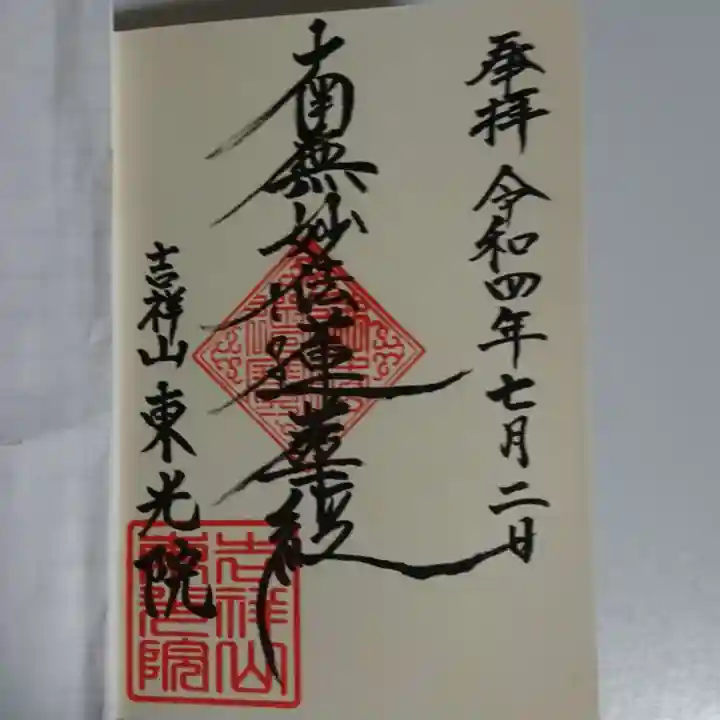 奉拝 令和四年七月二日
南無妙法蓮華経
吉祥山 東光院
吉祥山
東光院